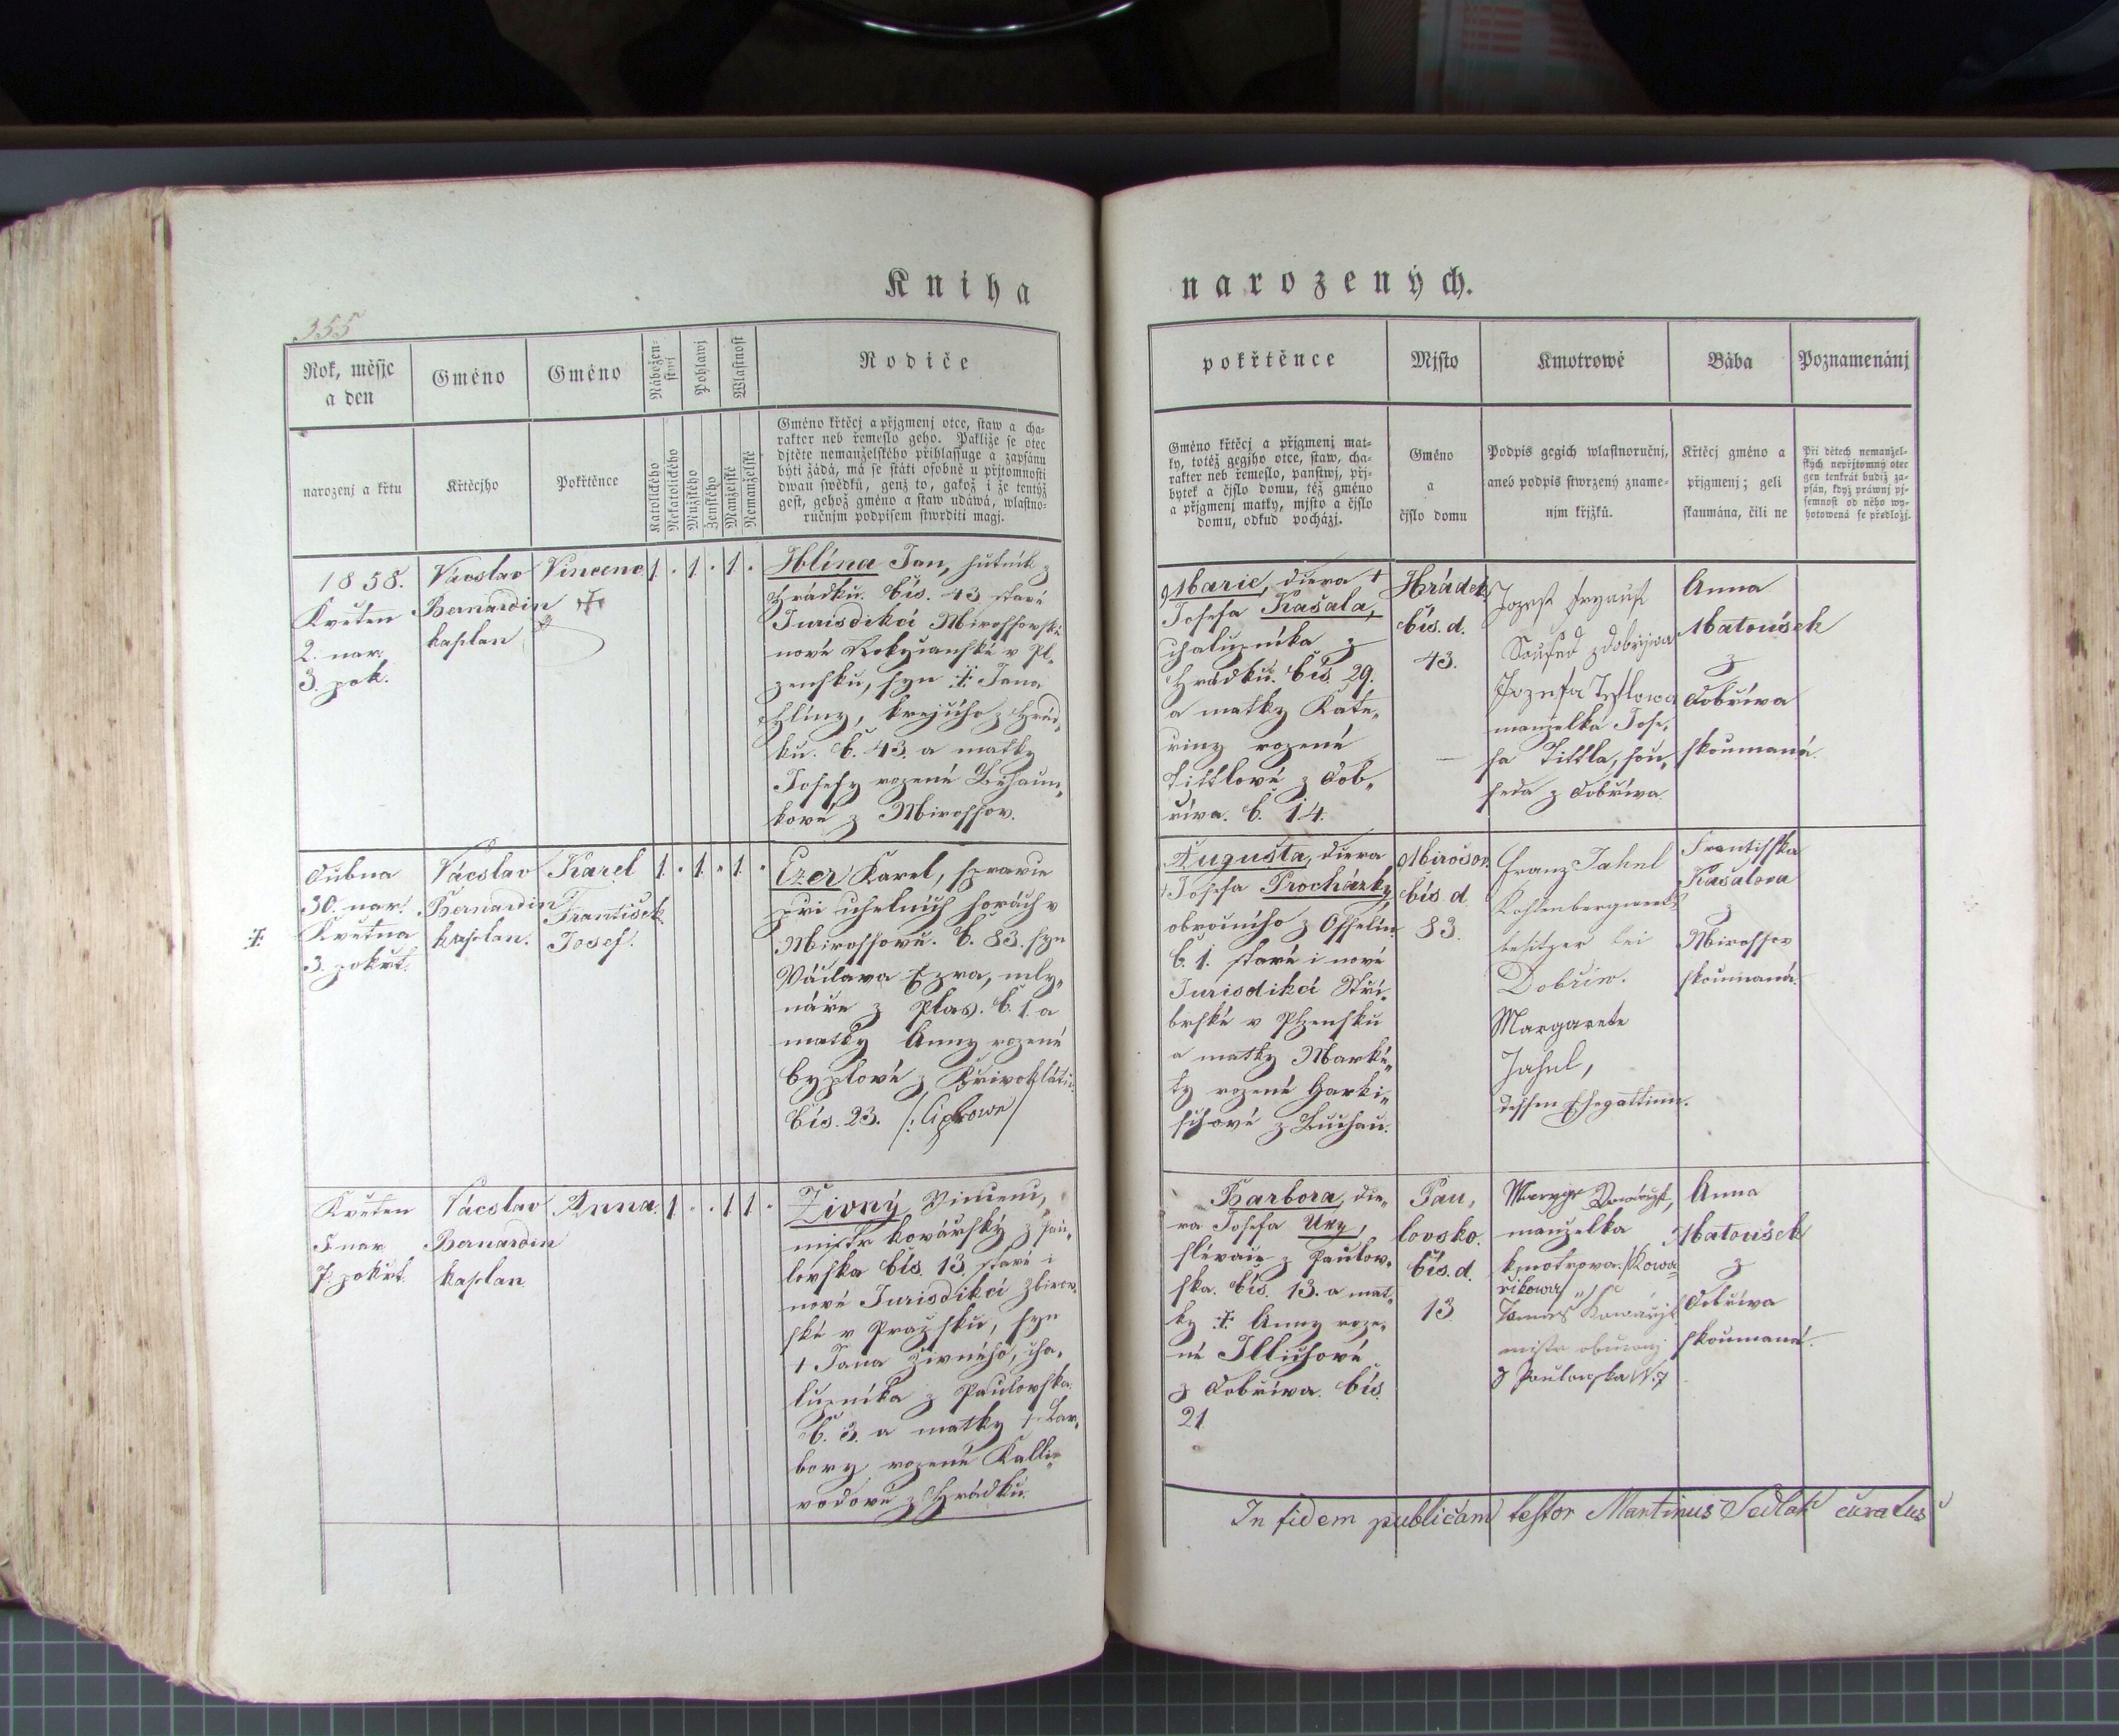 Kniha
narozených.
355
Rok, měsjc
a den
Gméno
Gméno
Nábožen-
stwj
Pohlawj
Wlastnost
Rodiče
narozenj a křtu
Křtěcjho
Pokřtěnce
Katolického
Nekatolického
Mužského
Ženského
Manželské
Nemanželské
Gméno křtěcj a přjgmenj otce, staw a cha-
rakter neb řemeslo geho. Pakliže se otec
djtěte nemanželského přihlassuge a zapsánu
býti žádá, má se státi osobně u přjtomnosti
dwau swědků, genž to, gakož i že tentýž
gest, gehož gméno a staw udáwá, wlastno-
ručnjm podpisem stwrditi magj.
1858.
Květen
2. nar.
3. pok.
Vácslav
Bernardin
kaplan
Vincenc
1 . 1 . 1 .
Hlína Jan, hutník z
Hrádku. čís. 43 staré
Jurisdikcí Mirossovské
nové Rokycanské v Pl„
zensku, syn Jana
Hlíny, krejčího z Hrád„
ku. č. 43. a matky
Josefy rozené
kové z Mirossov.
Dubna
30. nar.
Května
3. pokrt.
Vácslav
Bernardin
kaplan.
Karel
František
Josef.
1 . 1 . 1 .
Ezer Karel, správce
při uhelných horách v
Mirossově. č. 83. syn
Václava Ezra, mly„
náře z Plas. č. 1. a
matky Anny rozené
Cyplové z Křivoklátu
čís. 23.
Květen
5. nar
7. pokrt.
Vácslav
Bernardin
kaplan
Anna
1 . . 1 1 .
Živný Vincenc,
mistr kovářský z Pau„
lovska čís. 13. staré i
nové Jurisdikcí Zbirov„
ské v Pražsku, syn
† Jana Živného, cha„
lupníka z Paulovska
č. 3. a matky † Bar„
bory rozené Kalli„
vodové z Hrádku.
pokřtěnce
Mjsto
Kmotrowé
Bába
Poznamenánj
Gméno křtěcj a přjgmenj mat-
ky, totéž gegjho otce, staw, cha-
rakter neb řemeslo, panstwj, přj-
bytek a čjslo domu, též gméno
a přjgmenj matky, mjsto a čjslo
domu, odkud pocházj.
Gméno
a
čjslo domu
Podpis gegich wlastnoručnj,
aneb podpis stwrzený zname-
njm křjžků.
Křtěcj gméno a
přjgmenj; geli
skaumána, čili ne
Při dětech nemanžel-
ských nepřjtomný otec
gen tenkrát budiž za-
psán, když práwnj pj-
semnost od něho wy-
hotowená se předložj.
Marie, dcera †
Josefa Kašala,
chalupníka z
Hrádku. čís. 29.
a matky Kate„
řiny rozené
Tittlové z Dob„
říva. č. 14.
Hrádek
čís. d.
43.
Soused z Dobřjwa
manželka Jose„
fa Tittla, sou„
seda z Dobříva.
Anna
Matoušek
z
Dobříva
skoumaná.
Augusta, dcera
† Josefa Procházky,
obročního z Osselín
č. 1. staré i nové
Jurisdikcí Stří„
brské v Plzensku
a matky Marké„
ty rozené Harki„
schové z Luchau.
Mirošov.
čís d.
83.
Franz Jahnl
Kohlenbergwerks
besitzer bei
Dobřiw.
Margarete
Jahnl,
dessen Ehegattinn.
Frantisska
Kašalova
z
Mirossov
skoumaná.
Barbora, dce„
ra Josefa Ury,
slévače z Paulov„
ska. čís. 13. a mat„
ky Anny roze„
né Illichové
z Dobříva. čís.
21.
Pau„
lovsko.
čís. d.
13.
manželka
kmotrova. /Kowa
řikowa/
mistr obuwnj
z Paulowska N. 7
Anna
Matoušek
z
Dobříva
skoumaná.
In fidem publicam testor Martinus Sedlak curatus